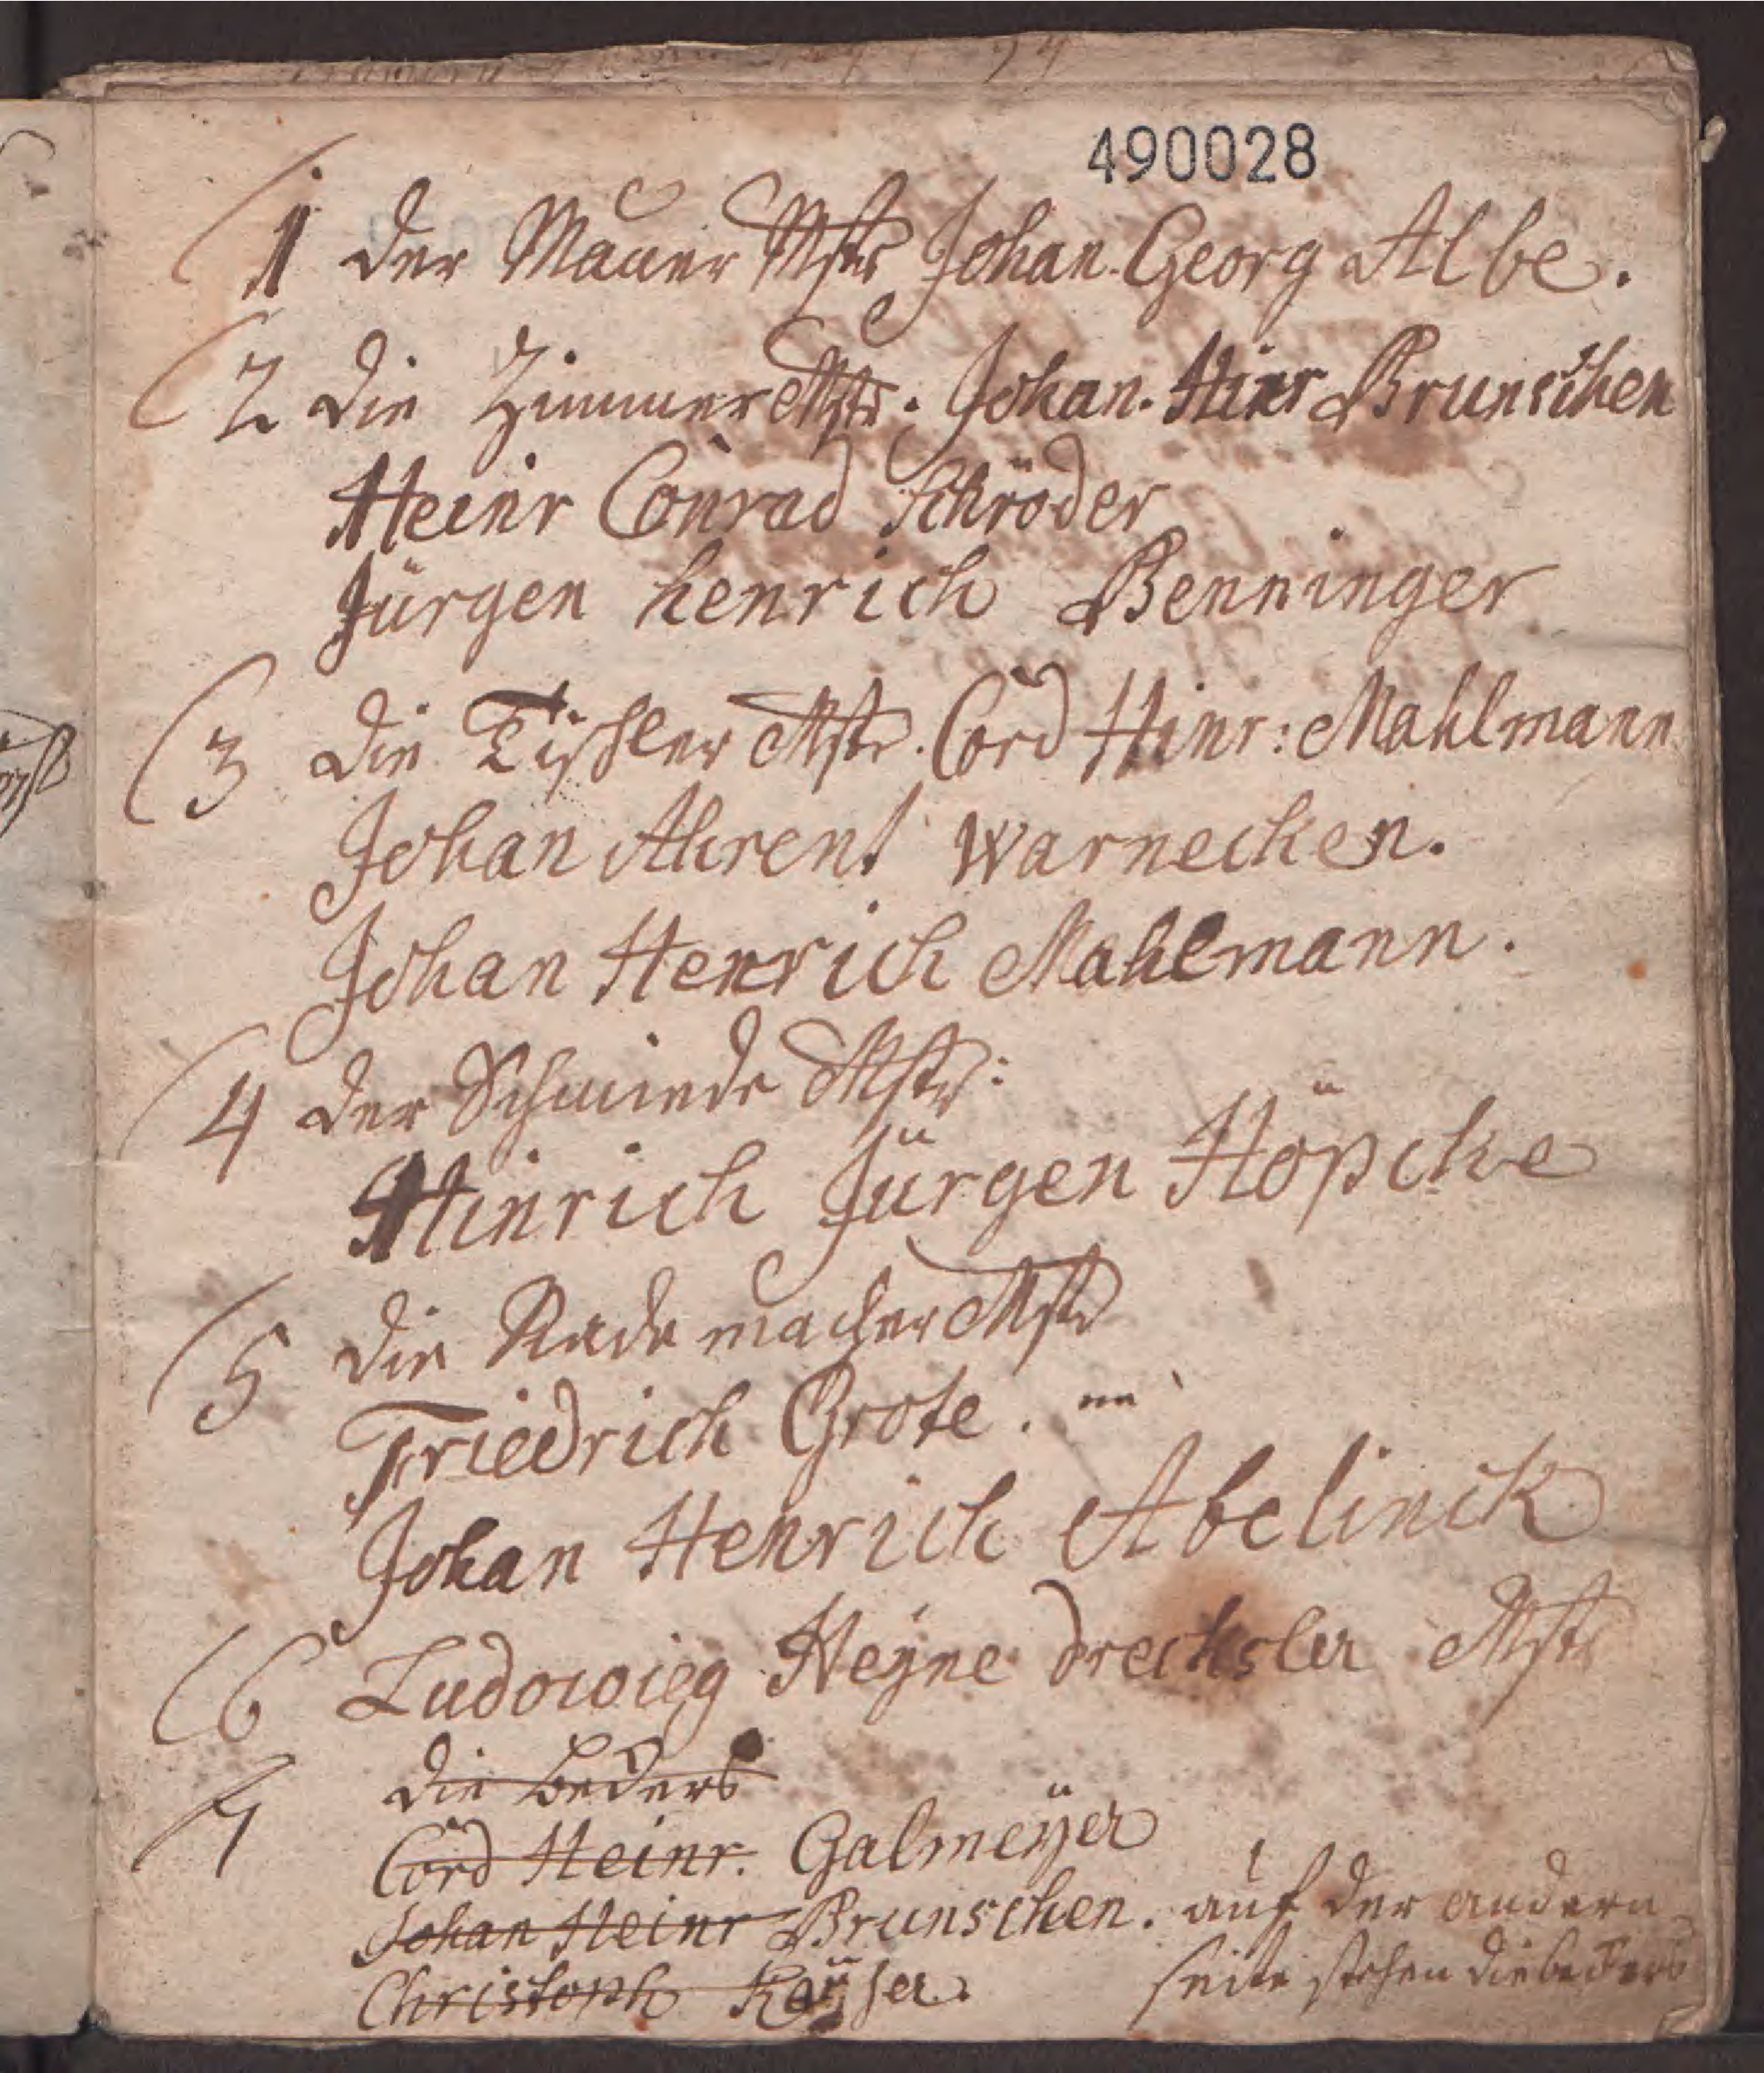 490028
1 der Mauer Mstr Johan. Georg Albe.
2 die Zimmer Mstr. Johan. Hinr Brunschen
Heinr Conrad Schröder
Jürgen henrich Benninger
3 die Tischler Mstr. Cord Hinr: Mahlmann
Johan Ahrent Warnecken.
Johan Henrich Mahlmann.
4 der Schmiede Mstr:
Hinrich Jürgen Höpcke
5 die Rade macher Mstr
Friedrich Grote.
Johan Henrich Abelinck
6 Ludowieg Heÿne drechsler Mstr
7 die beders
Cord Heinr. Galmeÿer
Johan Heinr Brunschen. auf der andern
Christoph Keÿser. seite stehen die beders